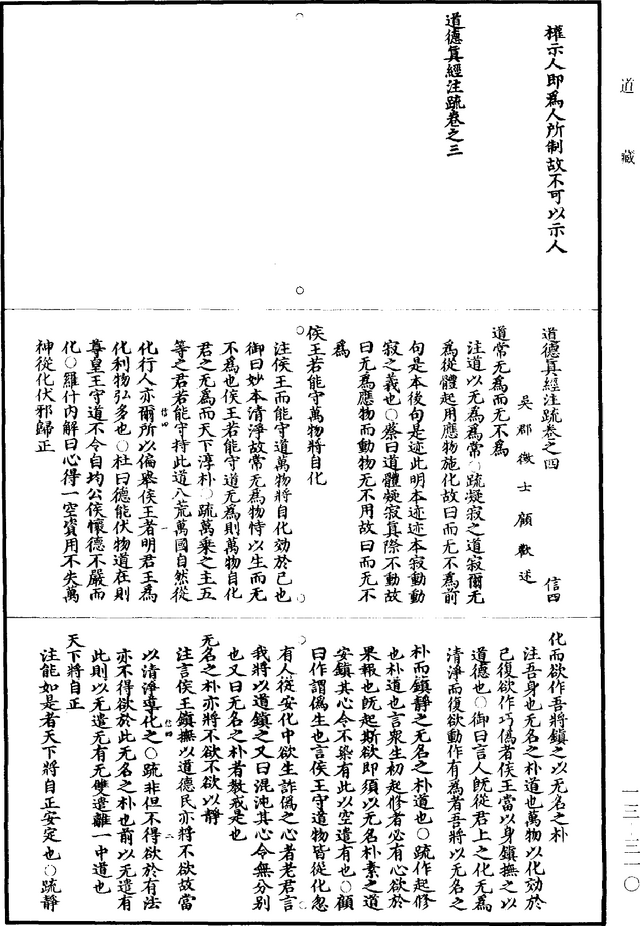 道藏
權示人即爲人所制故不可以示人
道德眞經注疏卷之三
道德眞經注疏卷之四
信四
吳郡徵士顧歡述
道常无爲而无不爲
注道以无爲爲常○疏凝寂之道寂爾无
爲從體起用應物施化故曰而无不爲前
句是本後句是迹此明本迹迹本寂動動
寂之義也○蔡曰道體凝寂真際不動故
曰无爲應物而動物无不用故曰而无不
爲
侯王若能守萬物將自化
注侯王而能守道萬物將自化効於己也
御曰妙本清淨故常无爲物恃以生而无
不爲也侯王若能守道无爲則萬物自化
君之无爲而天下淳朴○疏萬乘之主五
等之君若能守持此道八荒萬國自然從
化行人亦爾所以偏舉侯王者明君王爲
化利物弘多也○杜曰德能伏物道在則
尊皇王守道不令自均公侯懷德不嚴而
化○羅什内解曰心得一空資用不失萬
神從化伏邪歸正
信四
一
化而欲作吾將鎮之以无名之朴
注吾身也无名之朴道也萬物以化効於
己復欲作巧僞者侯王當以身鎮撫之以
道德也○御曰言人旣從君上之化无爲
清淨而復欲動作有爲者吾將以无名之
朴而鎮静之无名之朴道也○疏作起修
也朴道也言衆生初起修者必有心欲於
果報也旣起斯欲即須以无名朴素之道
安鎮其心令不染有此以空遣有也○顧
曰作謂僞生也言侯王守道物皆從化忽
有人從安化中欲生詐僞之心者老君言
我將以道鎮之又曰混沌其心令無分别
也又曰无名之朴者教戒是也
无名之朴亦將不欲不欲以靜
注言侯王鎮撫以道德民亦將不欲故當
以清淨導化之○疏非但不得欲於有法
亦不得欲於此无名之朴也前以无遣有
此則以无遣无有无雙遣離一中道也
天下將自正
注能如是者天下將自正安定也○疏靜
信四
二
一三·三一〇